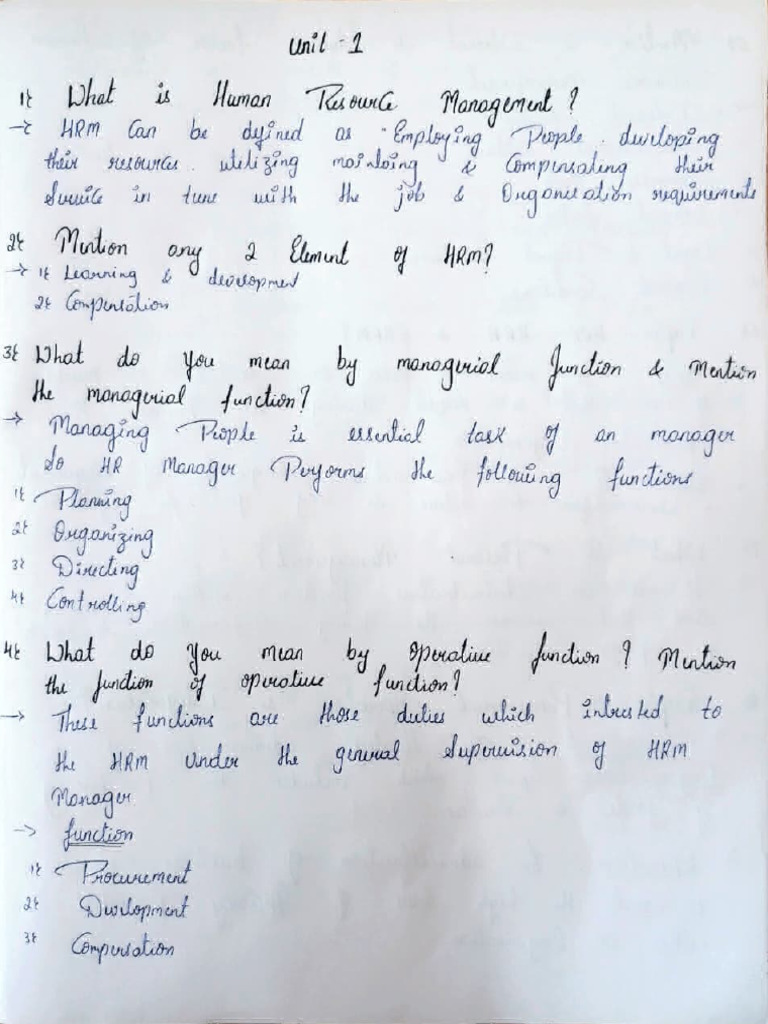 Unit - 1
1} What is Human Resource Management ?
→ HRM Can be defined as Employing People developing
their resources utilizing maintaing & Compensating their
Service in tune with the job & Organisation requirements
2} Mention any 2 Element of HRM?
→ 1} Learning & development
2} Compensation
3} What do you mean by managerial function & Mention
the managerial function?
→ Managing People is essential task of an manager
So HR Manager Performs the following functions
1} Planning
2} Organizing
3} Directing
4} Controlling
4} What do you mean by operative function ? Mention
the function of operative function?
→ These functions are those duties which intrusted to
the HRM under the general Supervision of HRM
Manager
→ function
1} Procurement
2} Development
3} Compensation